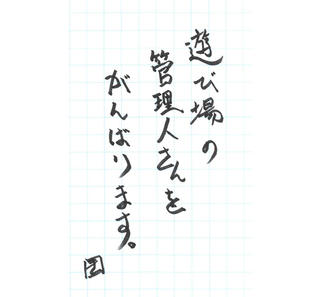 遊び場の
管理人さんを
がんばります。